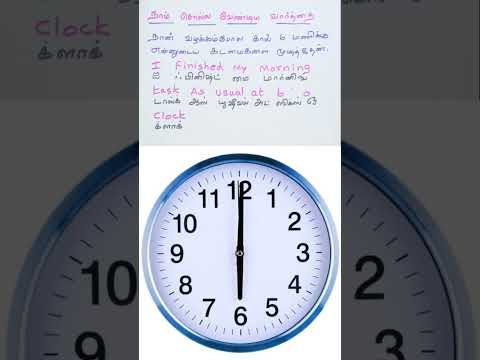 நாம் சொல்ல வேண்டிய வார்த்தை
நான் வழக்கம்போல காலை 6 மணிக்கு
என்னுடைய கடமைகளை முடித்தேன்.
I Finished My Morning
ஐ ஃபினிஷ்ட் மை மார்னிங்
task As usual at 6 'o
டாஸ்க் ஆஸ் யூஷ்வல் அட் சிக்ஸ் ஓ
Clock
க்ளாக்
12
11 1
10 2
9 3
8 4
7 5
6
Clock
க்ளாக்